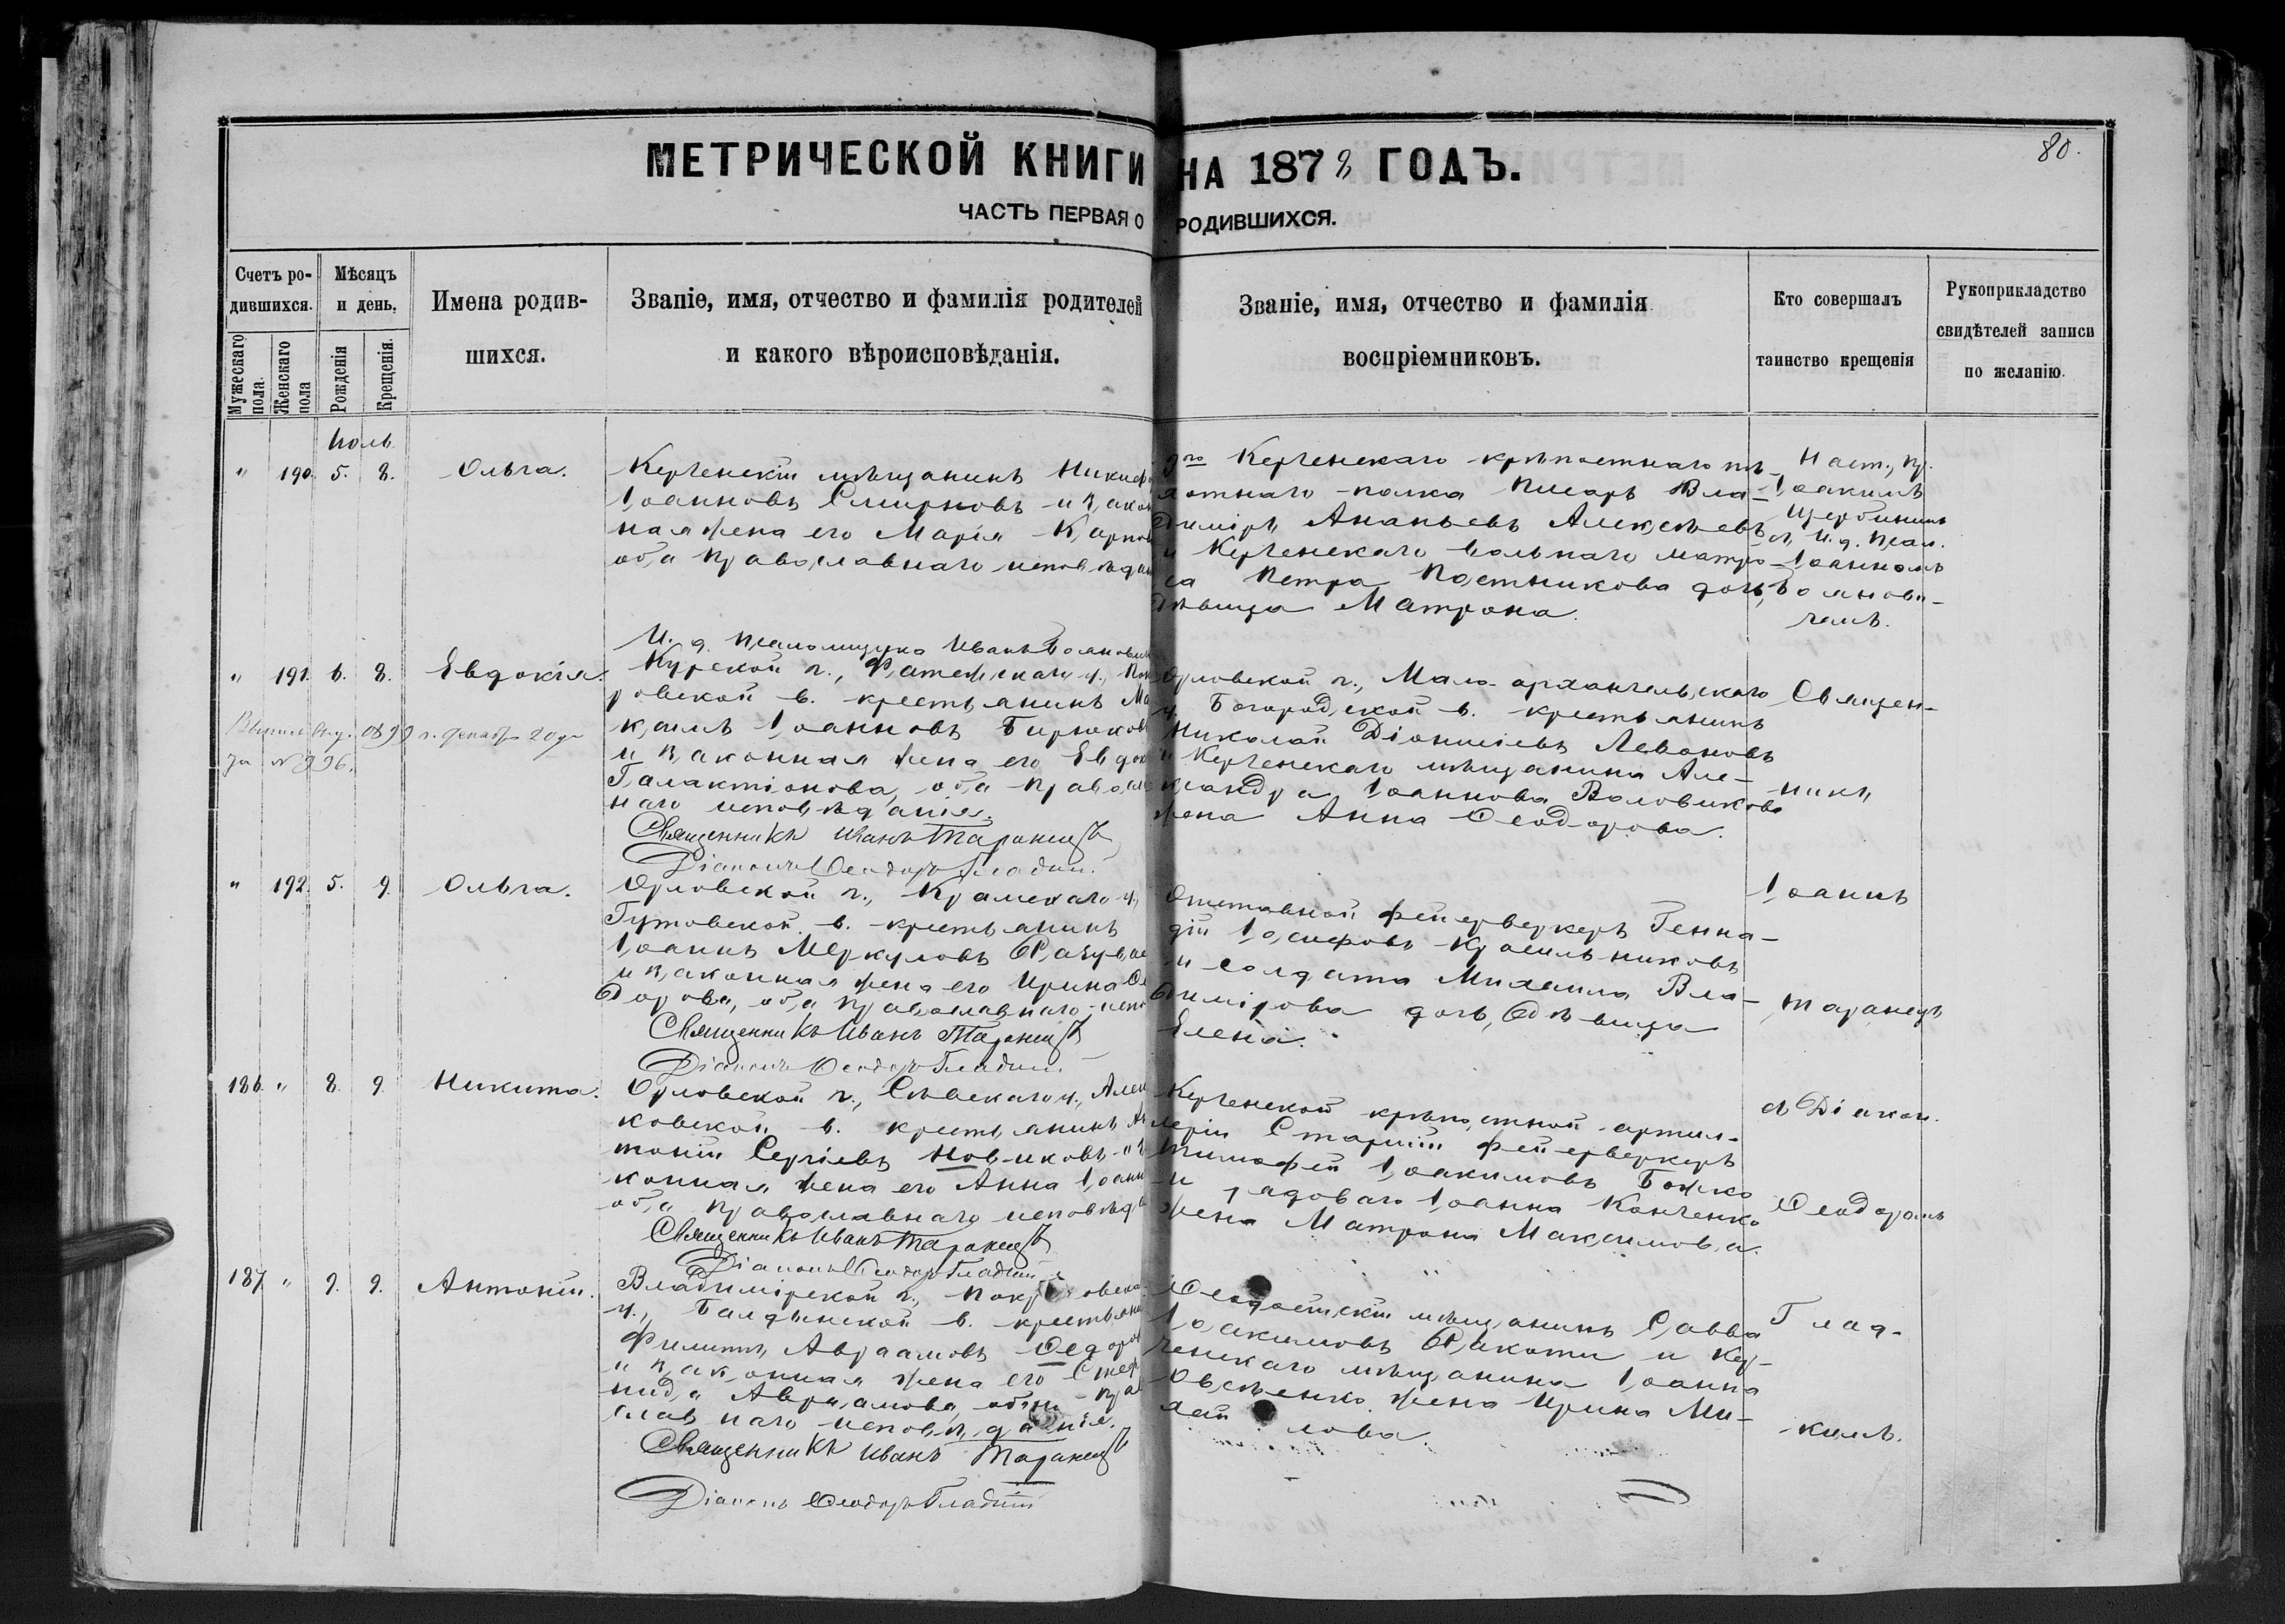 80.
МЕТРИЧЕСКОЙ КНИГИ НА 1878 ГОДЪ.
ЧАСТЬ ПЕРВАЯ О РОДИВШИХСЯ.
Счетъ ро-
дившихся.
Мужескаго пола.
Женскаго пола
Мѣсяцъ
и день.
Рожденія
Крещенія.
Имена родив-
шихся.
Званіе, имя, отчество и фамилія родителей
и какого вѣроисповѣданія.
Званіе, имя, отчество и фамилія
воспріемниковъ.
Кто совершалъ
таинство крещенія
Рукоприкладство
свидѣтелей записи
по желанію.
Іюль
" 190. 5. 8. Ольга.
Керченскій мѣщанинъ Никиф
Іоанновъ Смирновъ и закон
ная жена его Марія Карпов
оба православнаго исповѣдан
И. д. псаломщика Иванъ
го Керченскаго крѣпостнаго пѣ-
хотнаго полка писарь Вла-
диміръ Ананьевъ Алексѣевъ
и Керченскаго вольнаго матро-
са Петра Постникова дочь,
дѣвица Матрона.
Наст., пр.
Іоакимъ
Щербининъ
съ И. д. псал.
Іоанномъ
" 191. 6. 8. Евдокія.
г. декабр. 20 дн
за № 996.
Курской г., Фатежскаго у., Пок
ровской в. крестьянинъ Ма
ксимъ Іоанновъ Бирюковъ
и законная жена его Евдок
Галактіонова, оба правосла
наго исповѣданія.
Священникъ Иванъ Таранецъ
Діаконъ Ѳеодоръ Гладкій.
Орловской г., Мало-архангельскаго
у. Богородской в. крестьянинъ
Николай Діонисіевъ Левоновъ
и Керченскаго мѣщанина Але-
ксандра Іоаннова Воловикова
жена Анна Ѳеодорова.
Священ-
никъ
" 192. 5. 9. Ольга.
Орловской г., Крамскаго у.,
Гутовской в. крестьянинъ
Іоаннъ Меркуловъ
и законная жена его Ирина Ѳе
дорова, оба православнаго испо
Священникъ Иванъ Таранецъ
Діаконъ Ѳеодоръ Гладкій.
Отставной фейерверкеръ Генна-
дій Іосифовъ Красильниковъ
и солдата Михаила Вла-
димірова дочь, дѣвица
Елена.
Іоаннъ
Таранецъ
186. " 8. 9. Никита.
Орловской г., Сѣвскаго у., Алеш
ковской в. крестьянинъ Ан
тоній Сергіевъ Новиковъ и за
конная жена его Анна Іоанн
оба православнаго исповѣда
Священникъ Иванъ Таранецъ
Діаконъ Ѳеодоръ Гладкій
Керченской крѣпостной артил-
леріи Старшій фейерверкеръ
Тимофей Іоакимовъ Божко
и рядоваго Іоанна Конченко
жена Матрона Максимова.
съ Діакон.
Ѳеодоромъ
187. " 9. 9. Антоній.
Владимірской г., Покровска
у., в. крестьяни
Филиппъ Авраамовъ Ѳедоров
и законная жена его Стеф
нида Авраамова, оба пра
славнаго исповѣданія.
Священникъ Иванъ Таранецъ
Діаконъ Ѳеодоръ Гладкій
Ѳеодосійскій мѣщанинъ Савва
Іоакимовъ и Кер-
ченскаго мѣщанина Іоанна
Овсѣенко жена Ирина Ми-
лова.
Глад-
кимъ.